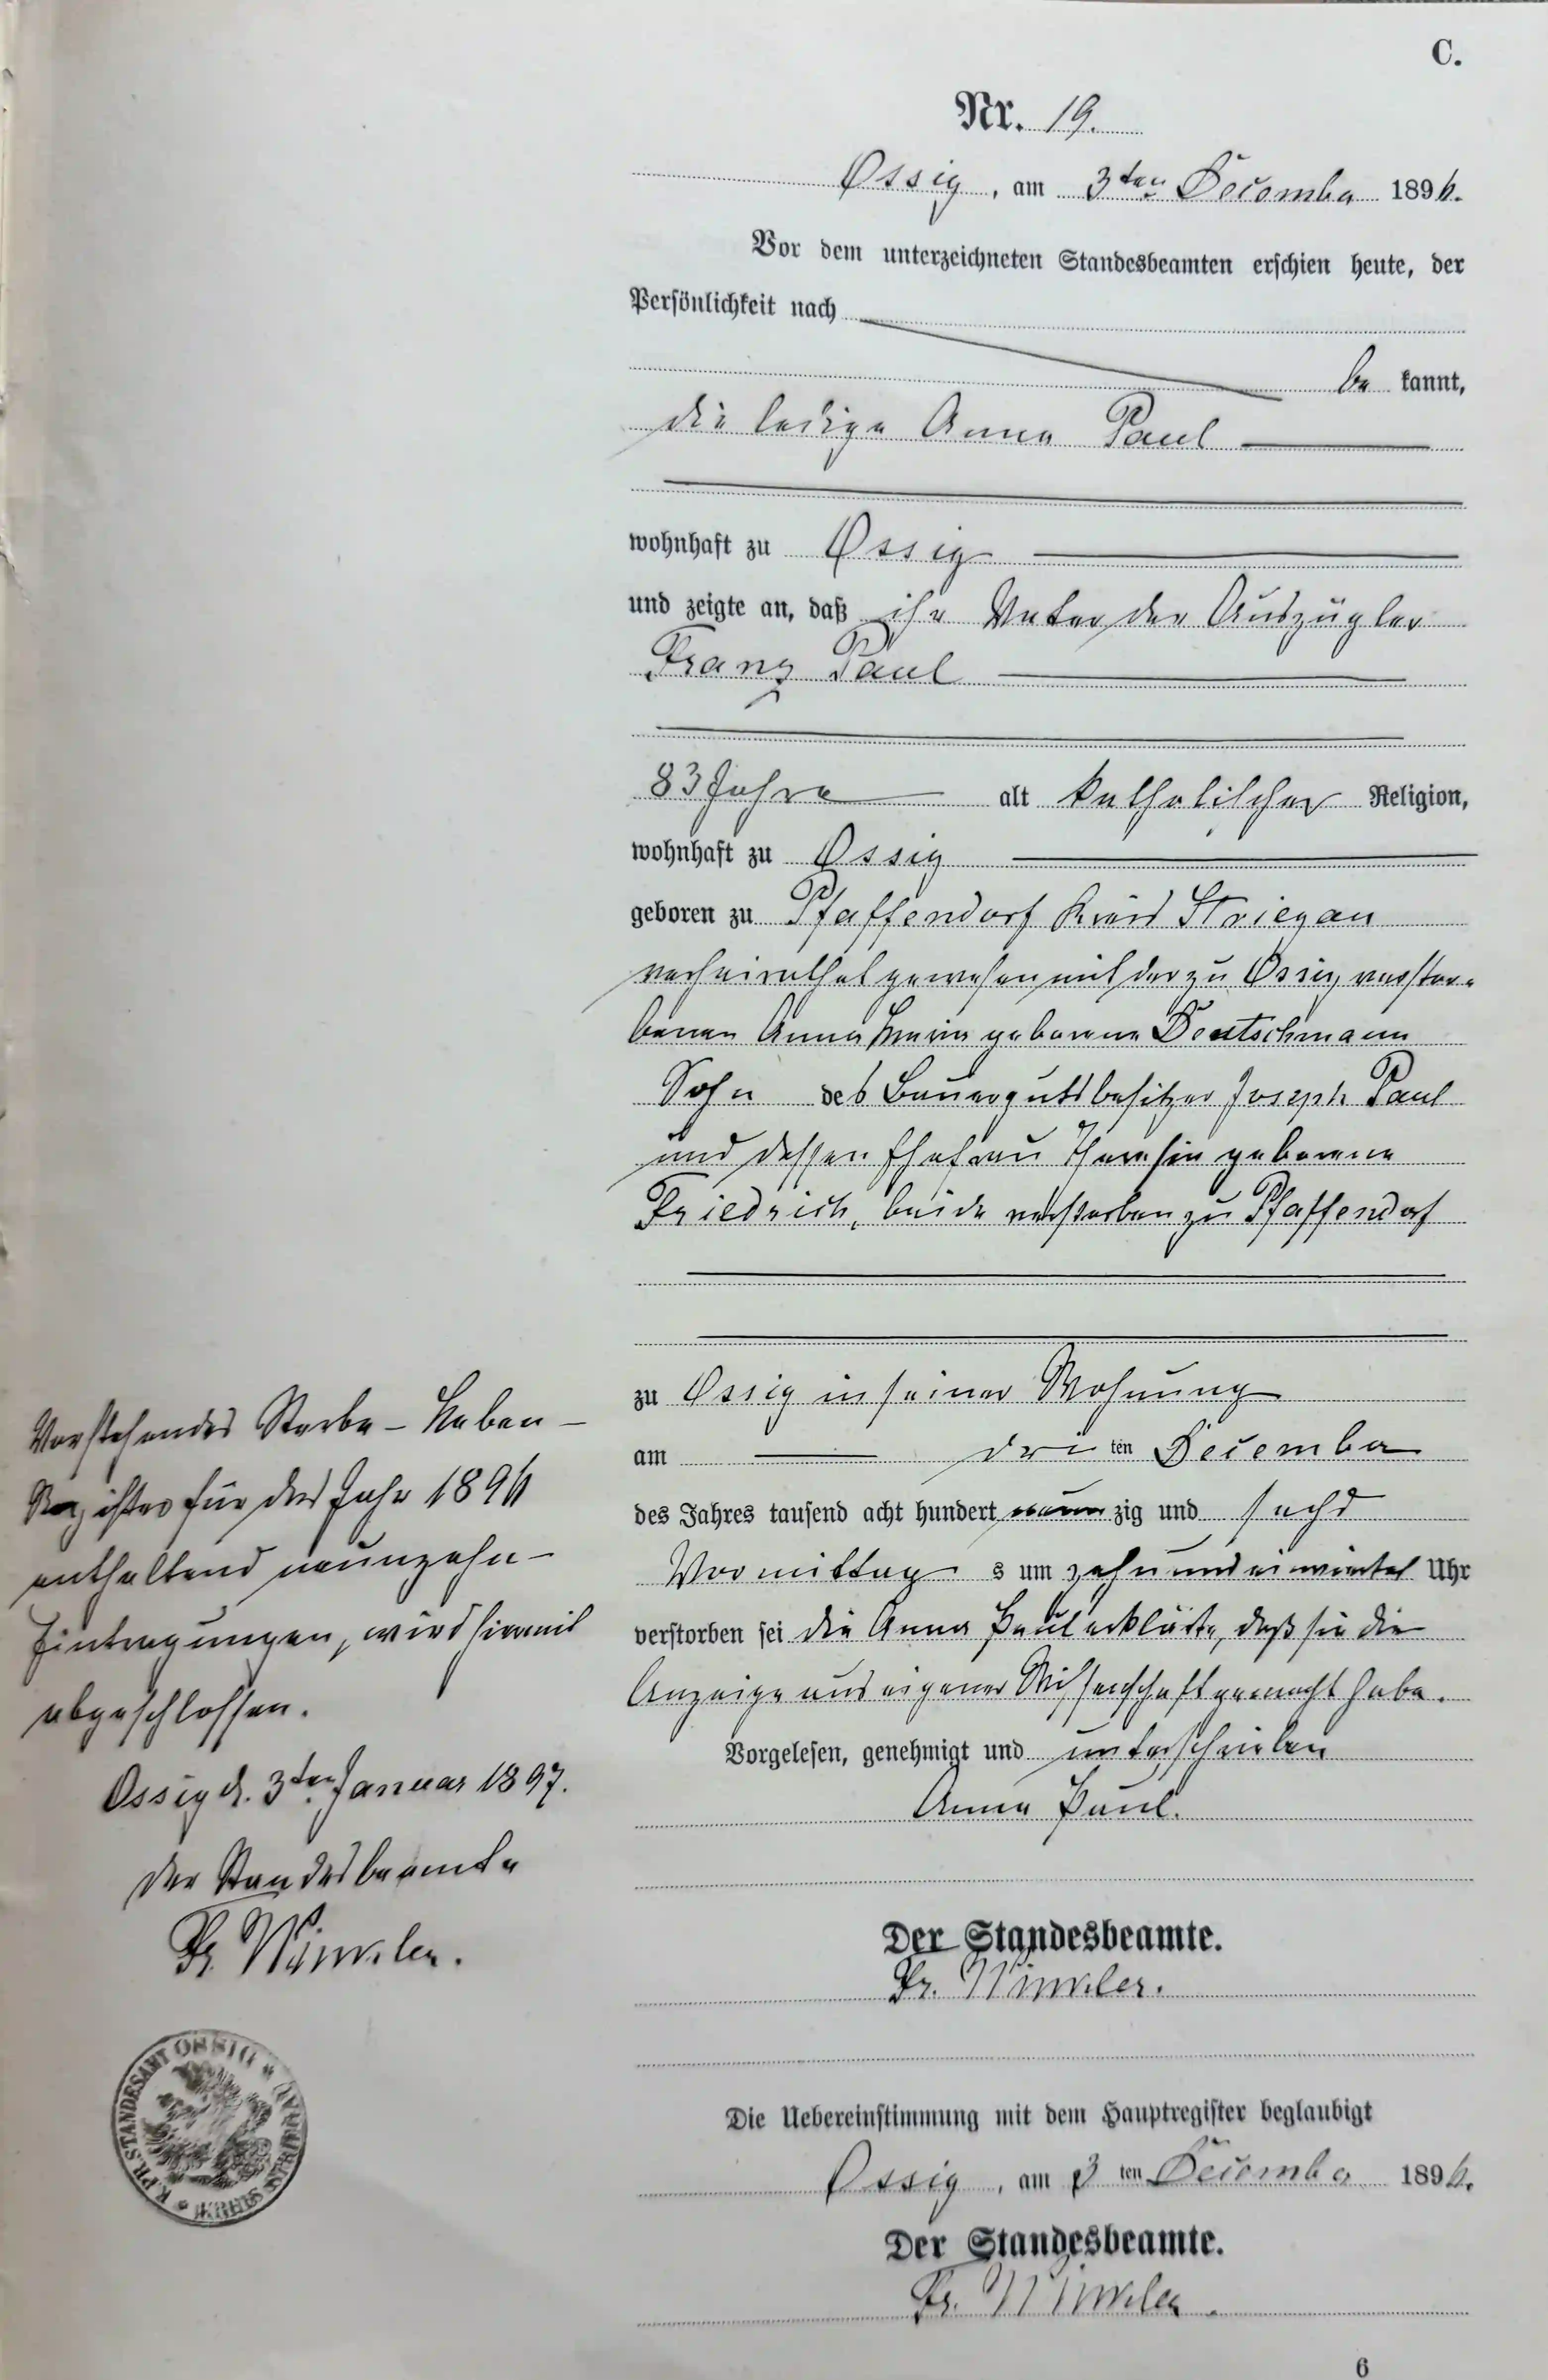 C.
Nr. 19.
Ossig, am 3ten December 1896.
Vor dem unterzeichneten Standesbeamten erschien heute, der
Persönlichkeit nach
be kannt,
die ledige Anna Paul
wohnhaft zu Ossig
und zeigte an, daß ihr Vater der Auszügler
Franz Paul
83 Jahre alt katholischer Religion,
wohnhaft zu Ossig
geboren zu Pfaffendorf Kreis Striegau
verheirathet gewesen mit der zu Ossig verstor-
benen Anna Maria geborene Deutschmann
Sohn des Bauergutsbesitzer Joseph Paul
und dessen Ehefrau Theresia geborene
Friedrich, beide verstorben zu Pfaffendorf
zu Ossig in seiner Wohnung
am dri ten December
des Jahres tausend acht hundert neun zig und sechs
Vormittag s um zehn und ein viertel Uhr
verstorben sei die Anna Paul erklärte, daß sie die
Anzeige aus eigener Wissenschaft gemacht habe.
Vorgelesen, genehmigt und unterschrieben
Anna Paul.
Der Standesbeamte.
Fr. Winkler.
Die Uebereinstimmung mit dem Hauptregister beglaubigt
Ossig, am 3 ten December 1896.
Der Standesbeamte.
Fr. Winkler.
6
Vorstehendes Sterbe-Neben-
Register für das Jahr 1896
enthaltend neunzehn-
Eintragungen, wird hiermit
abgeschlossen.
Ossig d. 3ten Januar 1897.
Der Standesbeamte
Fr. Winkler.
K. PR. STANDESAMT OSSIG